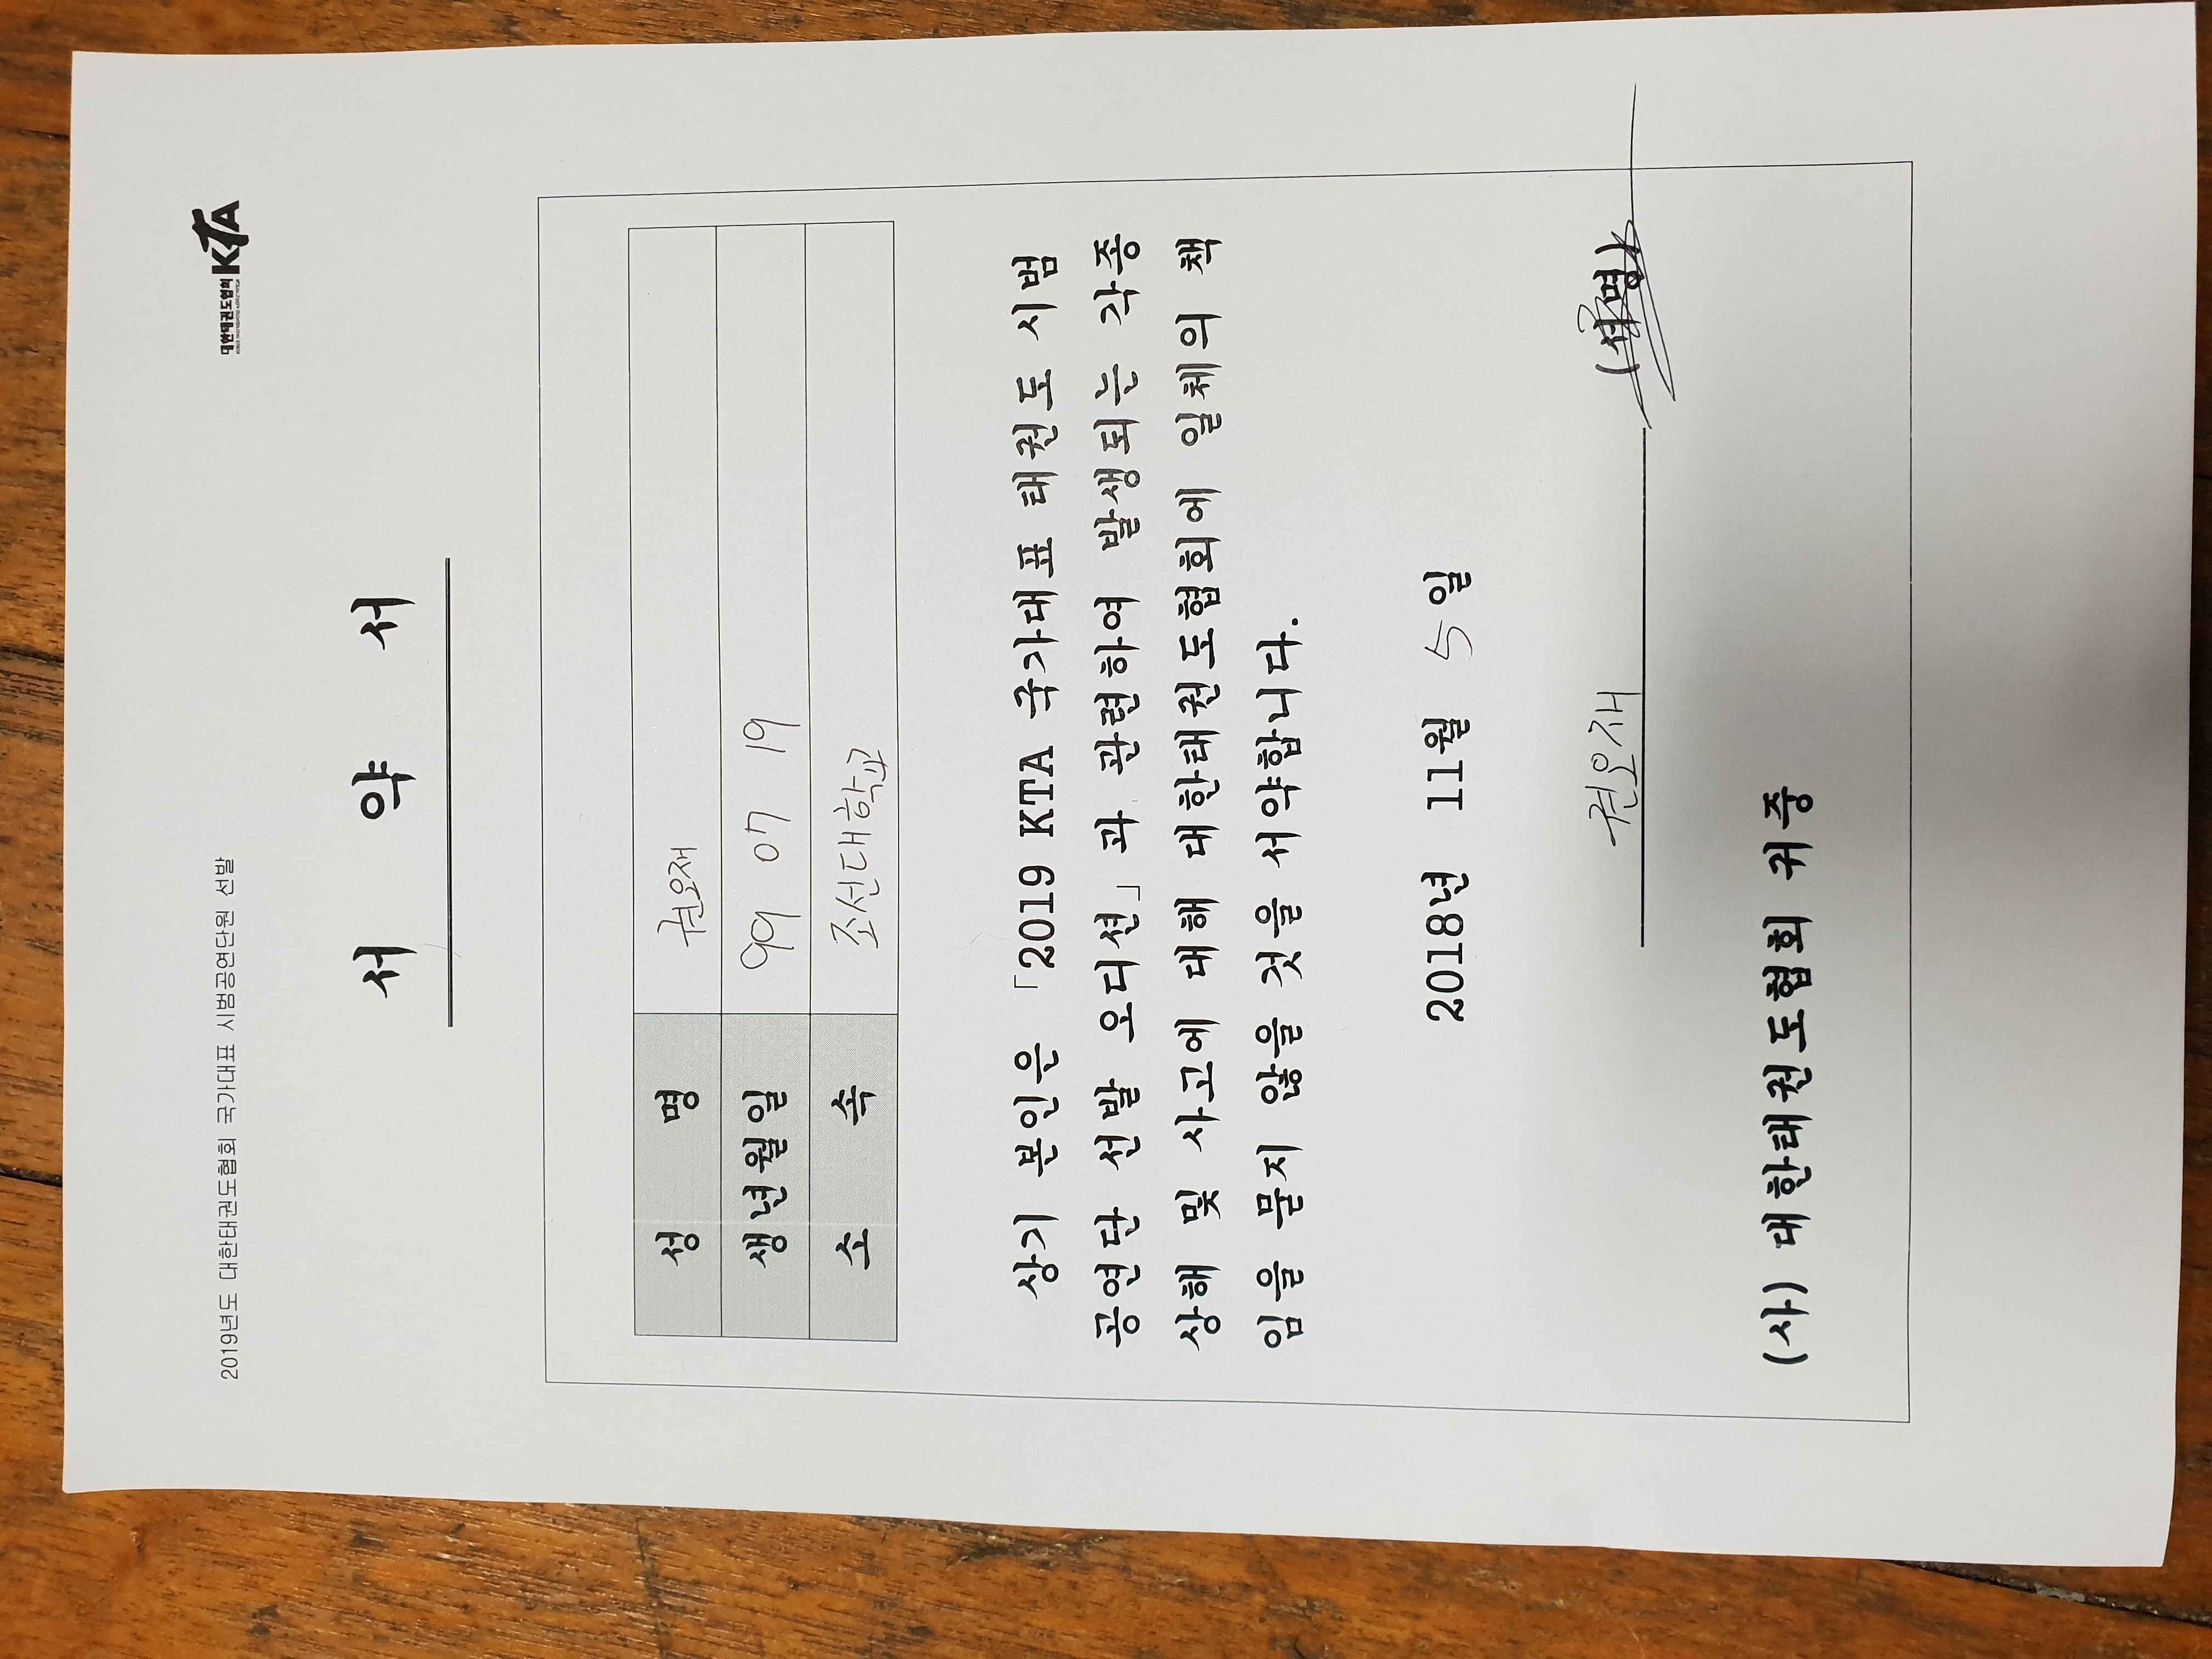 2019년도 대한태권도협회 국가대표 시범공연단원 선발
대한태권도협회 KTA
서 약 서
성 명 권오재
생년월일 99 07 19
소 속 조선대학교
상기 본인은 「2019 KTA 국가대표 태권도 시범
공연단 선발 오디션」과 관련하여 발생되는 각종
상해 및 사고에 대해 대한태권도협회에 일체의 책
임을 묻지 않을 것을 서약합니다.
2018년 11월 5일
권오재 (서명)
(사) 대한태권도협회 귀중